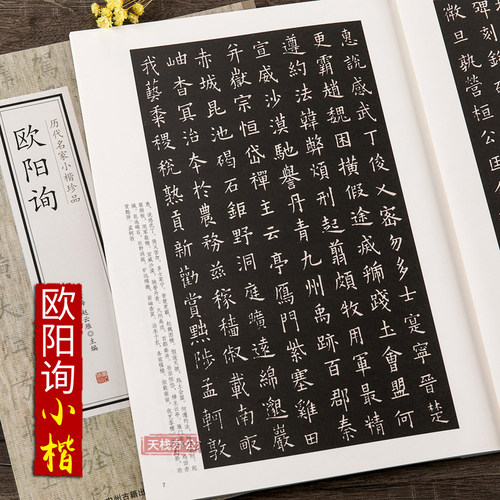 碑刻
微旦孰營桓公
惠說感武丁俊乂密勿多士寔寧晉楚
更霸趙魏困橫假途滅虢踐土會盟何
遵約法韓弊煩刑起翦頗牧用軍最精
宣威沙漠馳譽丹青九州禹跡百郡秦
并嶽宗恒岱禪主云亭鴈門紫塞雞田
赤城昆池碣石鉅野洞庭曠遠綿邈巖
岫杳冥治本於農務茲稼穡俶載南畝
我藝黍稷稅熟貢新勸賞黜陟孟軻敦
7
历代名家小楷珍品
欧阳询
赵云雁 主编
欧阳询小楷
天栈办公
州古籍出